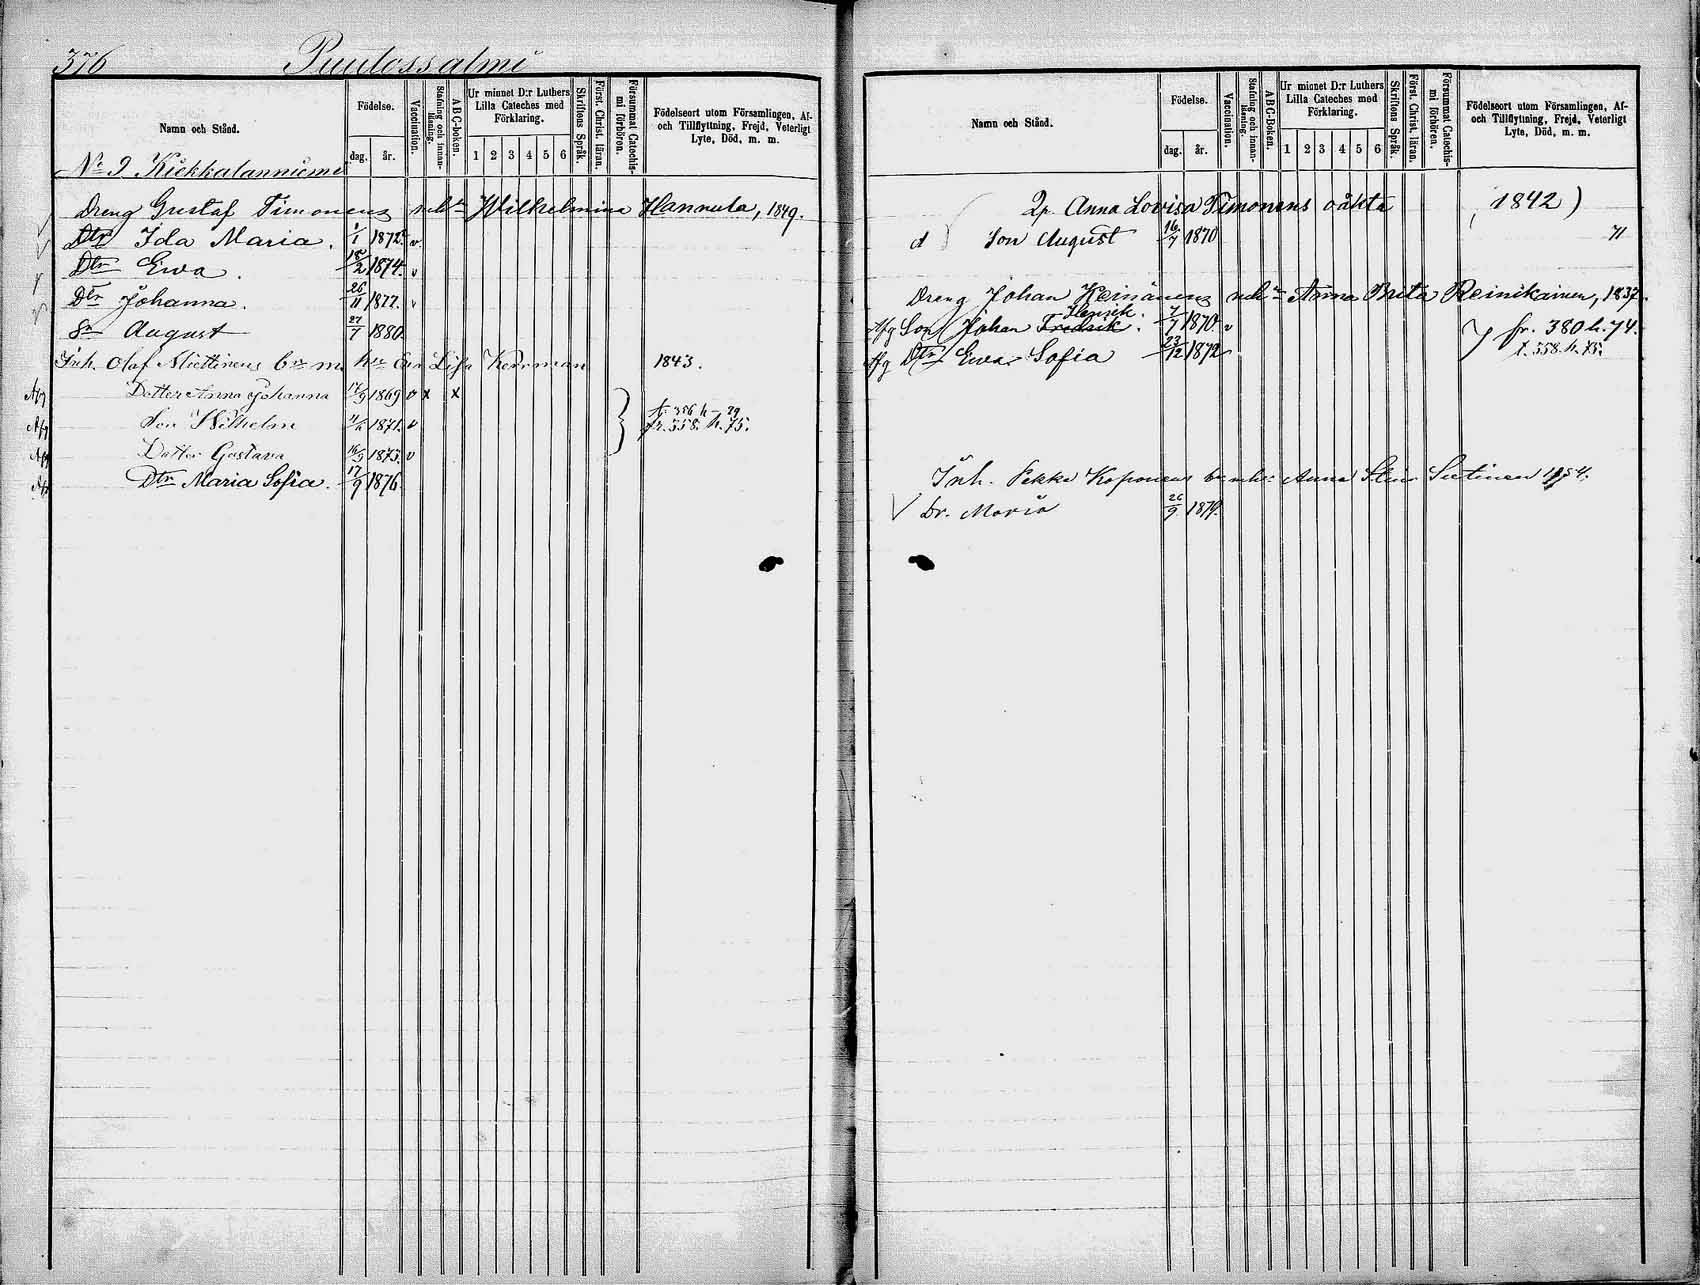 376 Puulossalmi
Namn och Stånd.
Födelse.
dag.
år.
Vaccination.
Stafning och innanläsning.
ABC-boken.
Ur minnet D:r Luthers Lilla Cateches med Förklaring.
1 2 3 4 5 6
Skriftens Språk.
Först. Christ. läran.
Försummat Catechismi förhören.
Födelseort utom Församlingen, Af- och Tillflyttning, Frejd, Veterligt Lyte, Död, m. m.
No 9 Kiekkalanniemi
Dreng Gustaf Timonens Wilhelmina Hannula, 1849.
Dtr Ida Maria. 1/1 1872 v
Dtr Ewa. 18/2 1874. v
Dtr Johanna. 26/11 1877. v
Sn August 27/7 1880
Inh. Olaf Miettinens Lisa Herrman 1843.
Afg Dotter Anna Johanna 17/9 1869 v x x
Afg Son Wilhelm 1871. v fr. 558. h. 75.
Afg Dotter Gustava 1873. v
Afg Dtr Maria Sofia. 17/9 1876
Namn och Stånd.
Födelse.
dag.
år.
Vaccination.
Stafning och innanläsning.
ABC-Boken.
Ur minnet D:r Luthers Lilla Cateches med Förklaring.
1 2 3 4 5 6
Skriftens Språk.
Först. Christ. läran.
Försummat Catechismi förhören.
Födelseort utom Församlingen, Af- och Tillflyttning, Frejd, Veterligt Lyte, Död, m. m.
Qp. Anna Lovisa Timonens oäkta (1842)
d Son August 16/7 1870 71
Dreng Johan Heinänens Anna Brita Reinikainen, 1837.
Henrik.
Afg Son Johan Fredrik. 7/7 1870. v fr. 380 h. 74.
Afg Dtr Ewa Sofia 23/12 1872 t. 558. h. 75.
Inh. Pekka Koponens Anna Stina
Dr. Maria 26/9 1879.